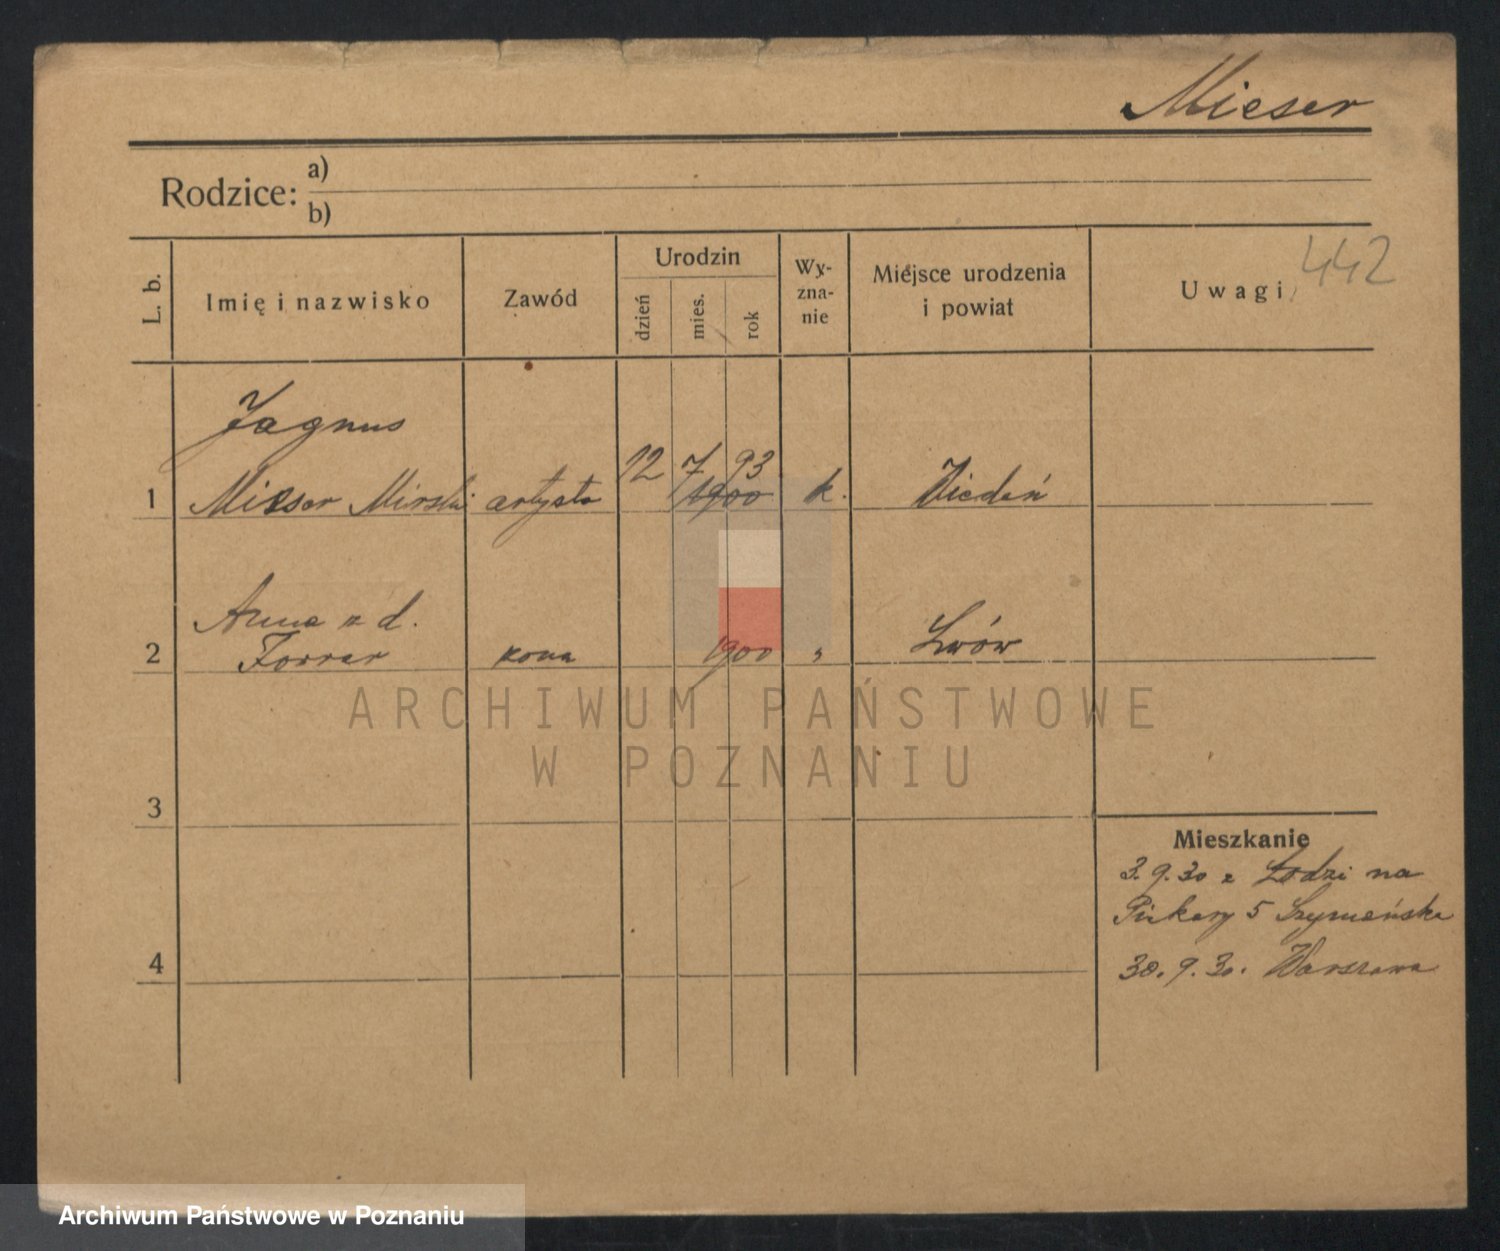 Mieser
Rodzice:
a)
b)
L. b.
Imię i nazwisko
Zawód
Urodzin
dzień
mies.
rok
Wy-
zna-
nie
Miejsce urodzenia
i powiat
Uwagi
442
Jagnus
1 Mieser Mirski artysta 12 7 93 1900 k. Wiedeń
Anna z d.
2 Forrer żona 1900 " Lwów
3
4
Mieszkanie
3.9.30 z Łodzi na
Piekary 5 Szymańska
30.9.30. Warszawa
ARCHIWUM PAŃSTWOWE
W POZNANIU
Archiwum Państwowe w Poznaniu